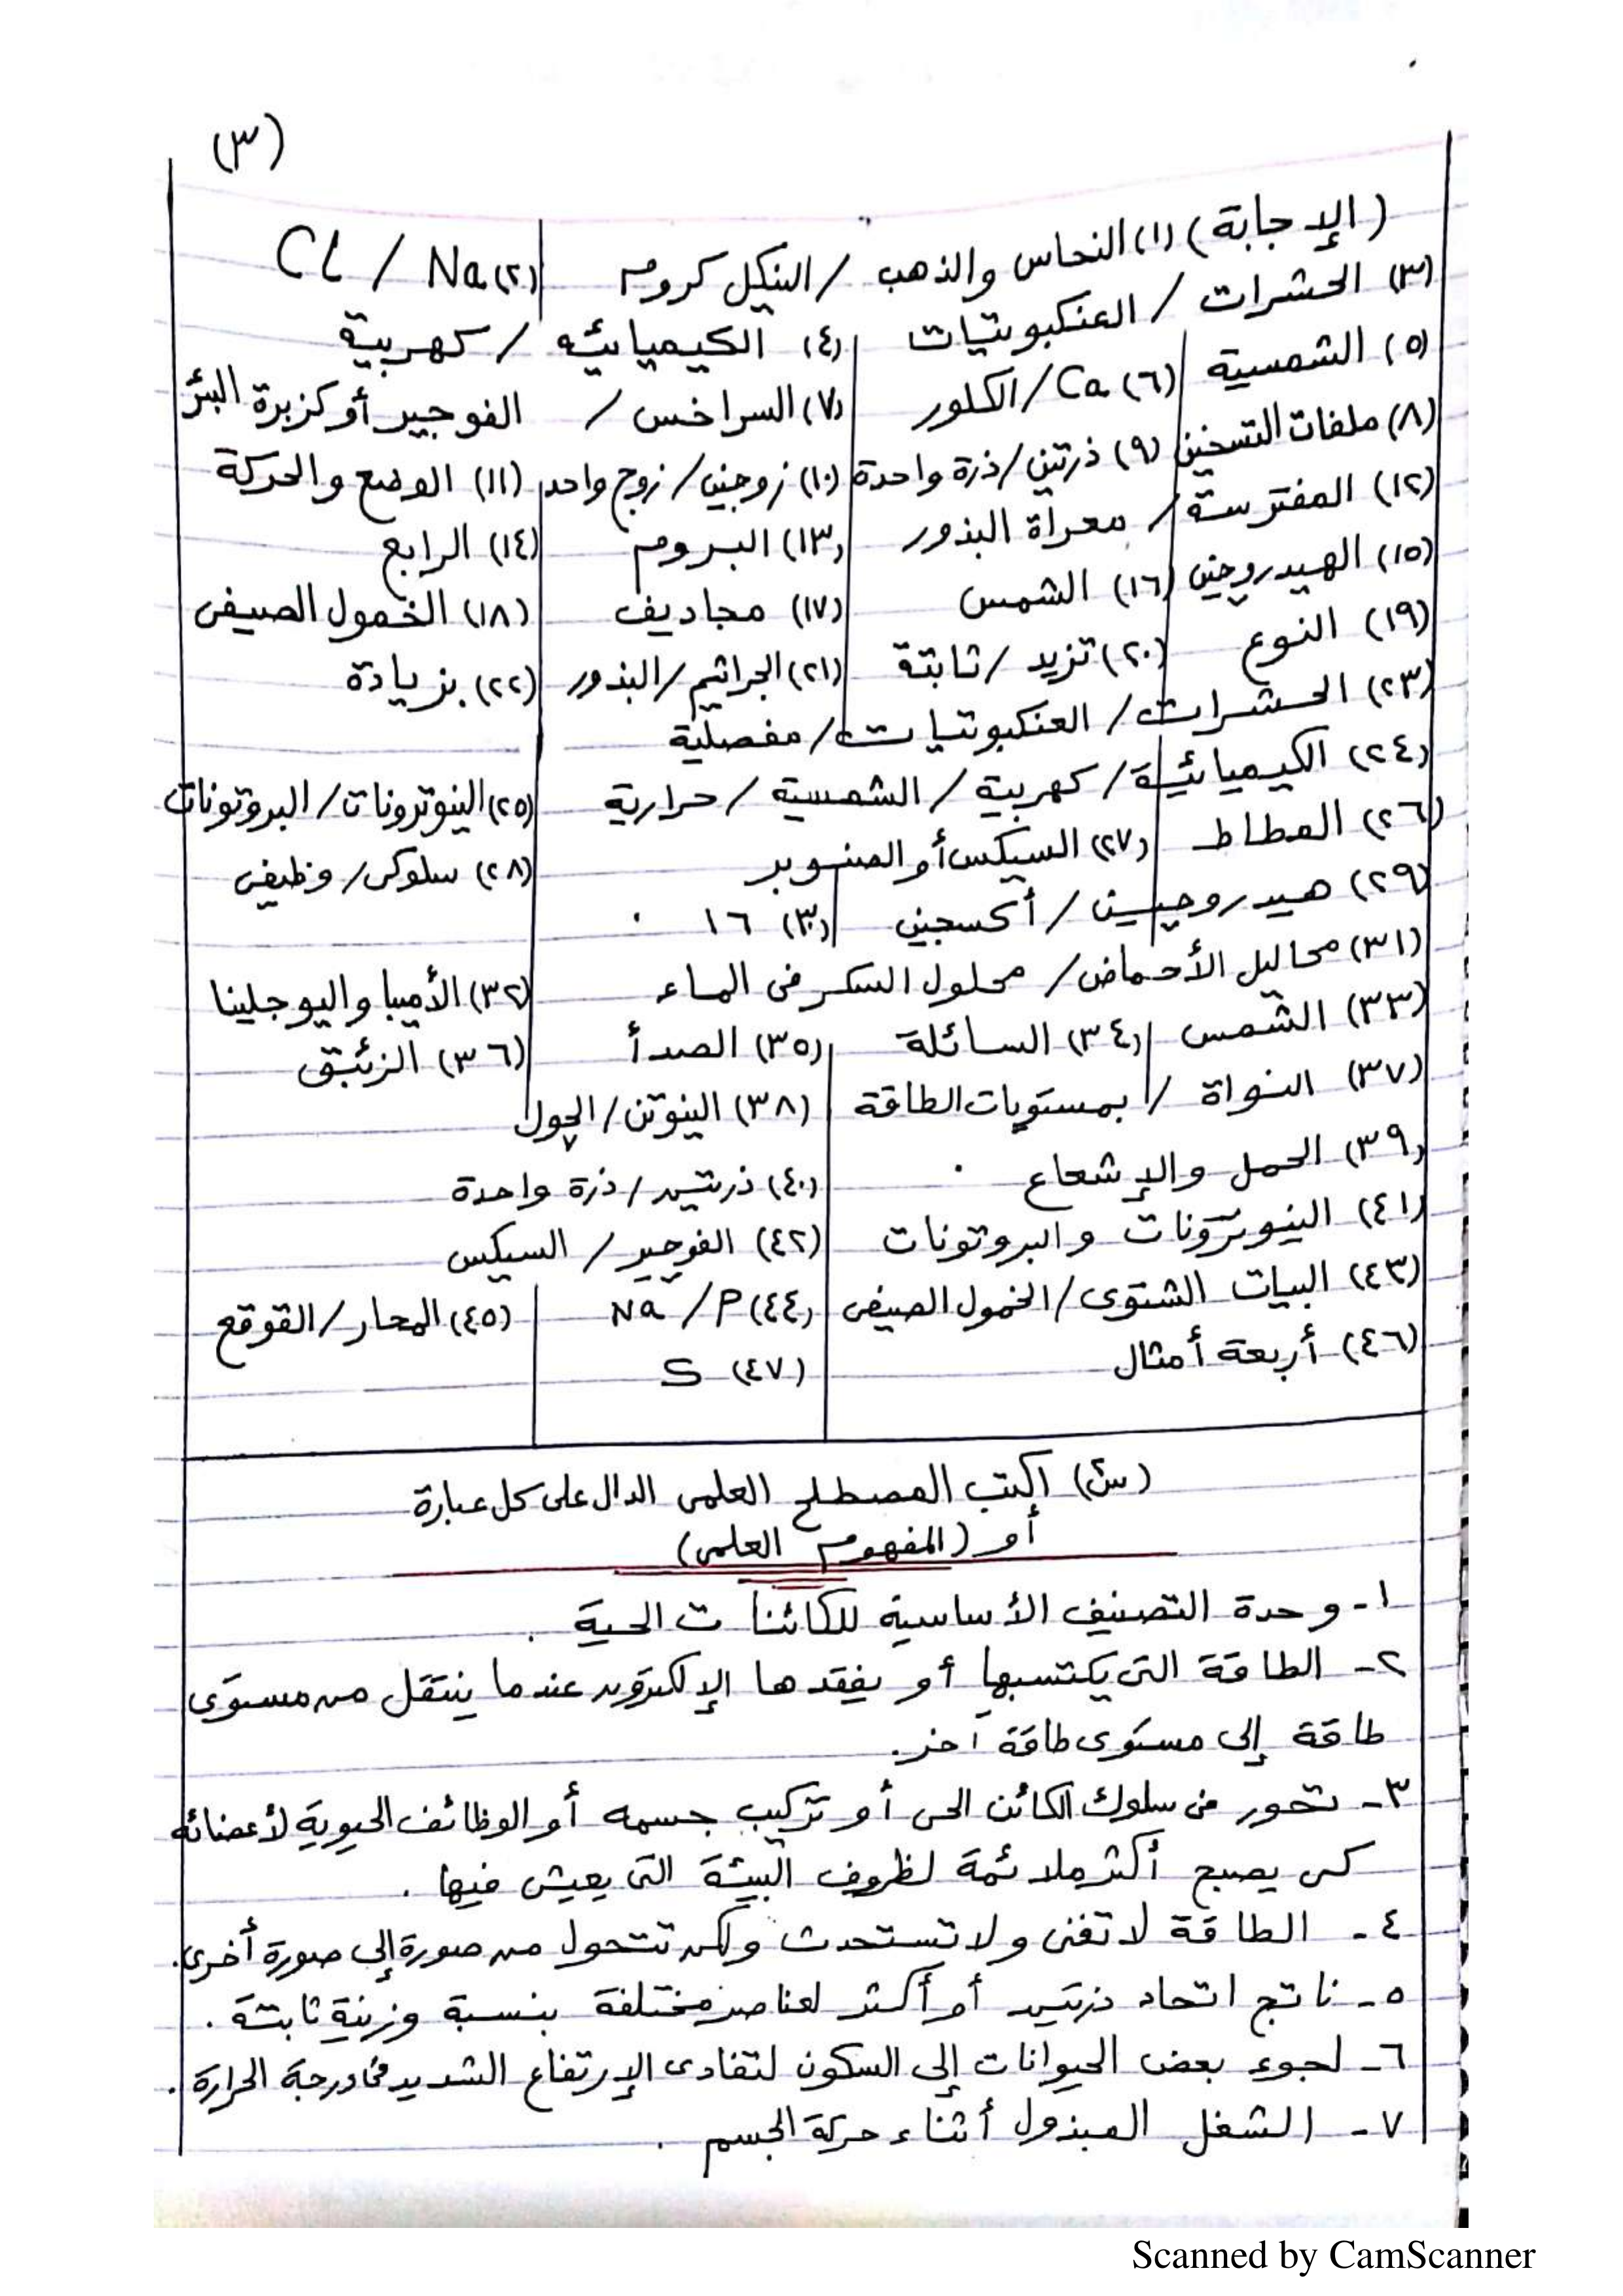 (٣)
(الإجابة) (١) النحاس والذهب / النيكل كروم (٢) Na / Cl
(٣) الحشرات / العنكبوتيات (٤) الكيميائيه / كهربية
(٥) الشمسية (٦) Ca / الكلور (٧) السراخس / الفوجير أو كزبرة البئر
(٨) ملفات التسخين (٩) ذرتين / ذرة واحدة (١٠) زوجين / زوج واحد (١١) الوضع والحركة
(١٢) المفترسة / معراة البذور (١٣) البروم (١٤) الرابع
(١٥) الهيدروجين (١٦) الشمس (١٧) مجاديف (١٨) الخمول الصيفى
(١٩) النوع (٢٠) تزيد / ثابتة (٢١) الجراثيم / البذور (٢٢) بزيادة
(٢٣) الحشرات / العنكبوتيات / مفصلية
(٢٤) الكيميائية / كهربية / الشمسية / حرارية (٢٥) النيوترونات / البروتونات
(٢٦) المطاط (٢٧) السيكس أو الصنوبر (٢٨) سلوكى / وظيفى
(٢٩) هيدروجين / أكسجين (٣٠) ١٦
(٣١) محاليل الأحماض / محلول السكر فى الماء (٣٢) الأميبا واليوجلينا
(٣٣) الشمس (٣٤) السائلة (٣٥) الصدأ (٣٦) الزئبق
(٣٧) النواة / بمستويات الطاقة (٣٨) النيوتن / الچول
(٣٩) الحمل والإشعاع (٤٠) ذرتين / ذرة واحدة
(٤١) النيوترونات والبروتونات (٤٢) الفوجير / السيكس
(٤٣) البيات الشتوى / الخمول الصيفى (٤٤) Na / P (٤٥) المحار / القوقع
(٤٦) أربعة أمثال (٤٧) S
(س٤) اكتب المصطلح العلمى الدال على كل عبارة
أو (المفهوم العلمى)
١- وحدة التصنيف الأساسية للكائنات الحية .
٢- الطاقة التى يكتسبها أو يفقدها الإلكترون عندما ينتقل من مستوى
طاقة إلى مستوى طاقة آخر.
٣- تحور فى سلوك الكائن الحى أو تركيب جسمه أو الوظائف الحيوية لأعضائه
كى يصبح أكثر ملائمة لظروف البيئة التى يعيش فيها .
٤- الطاقة لا تفنى ولا تستحدث ولكن تتحول من صورة إلى صورة أخرى.
٥- ناتج اتحاد ذرتين أو أكثر لعناصر مختلفة بنسبة وزنية ثابتة .
٦- لجوء بعض الحيوانات إلى السكون لتفادى الإرتفاع الشديد فى درجة الحرارة .
٧- الشغل المبذول أثناء حركة الجسم .
Scanned by CamScanner